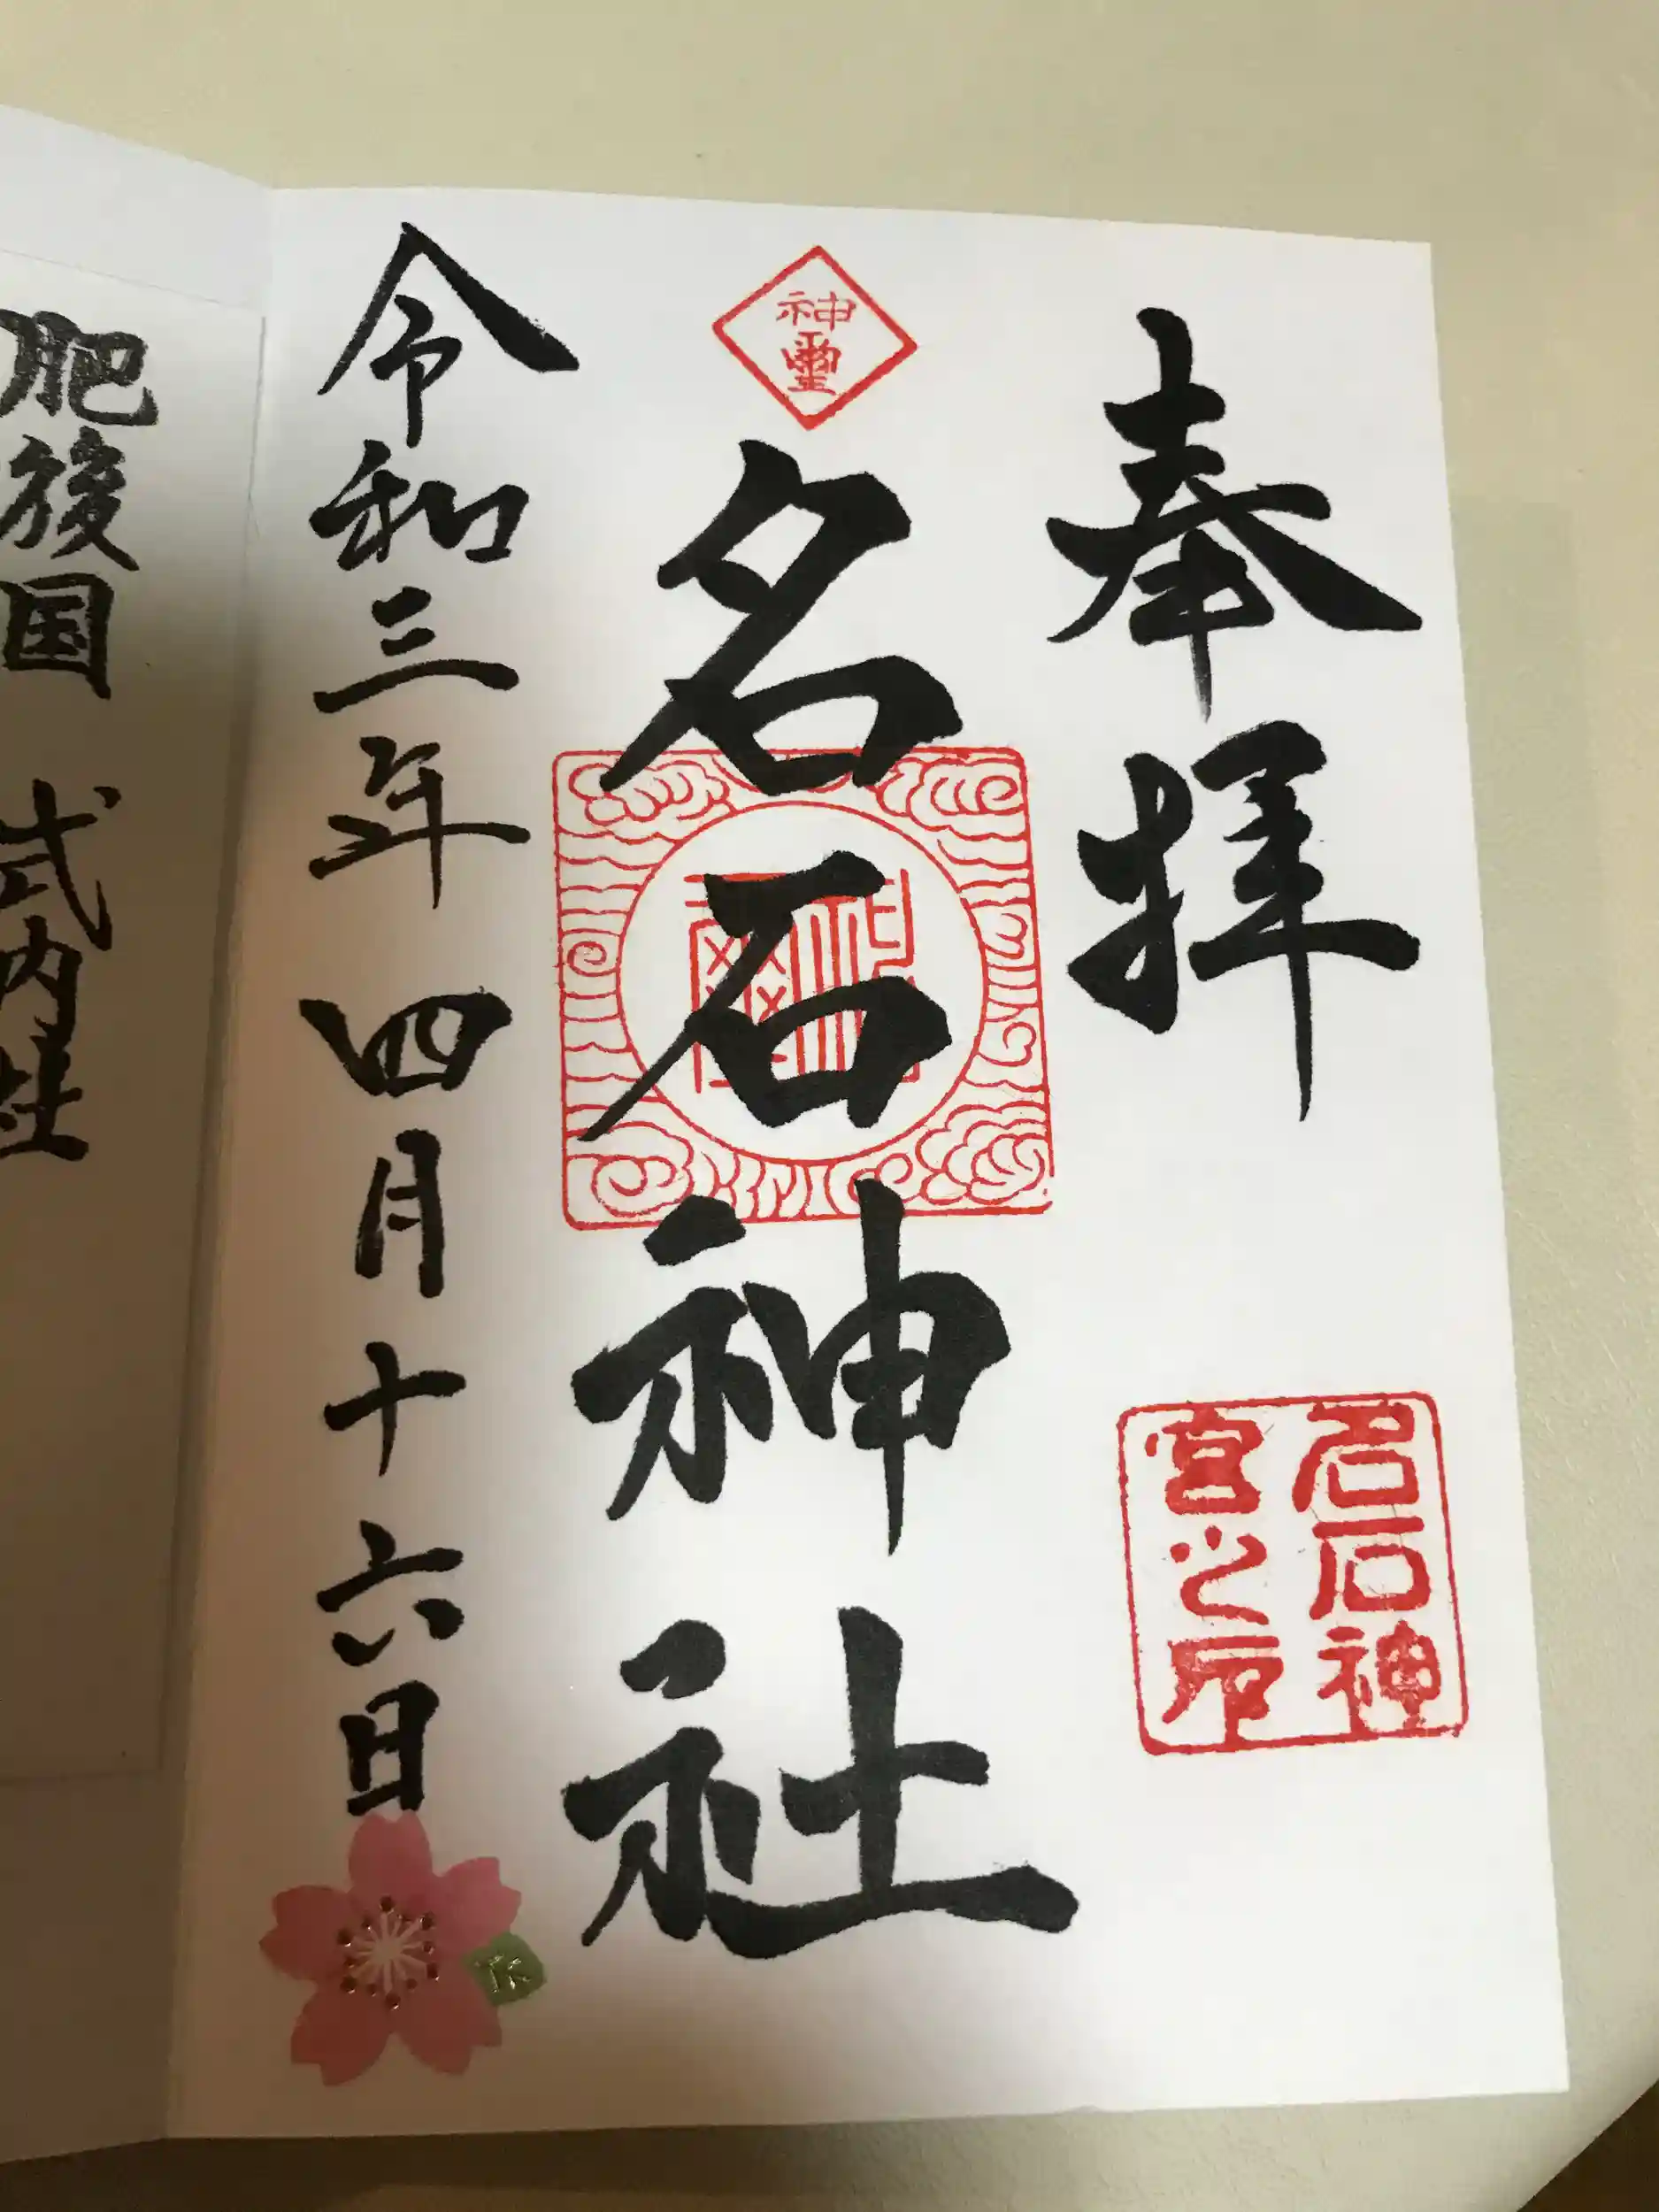 奉拝
名石神
宮之印
神霊
名石神社
令和三年 四月十六日
肥後国 式内社